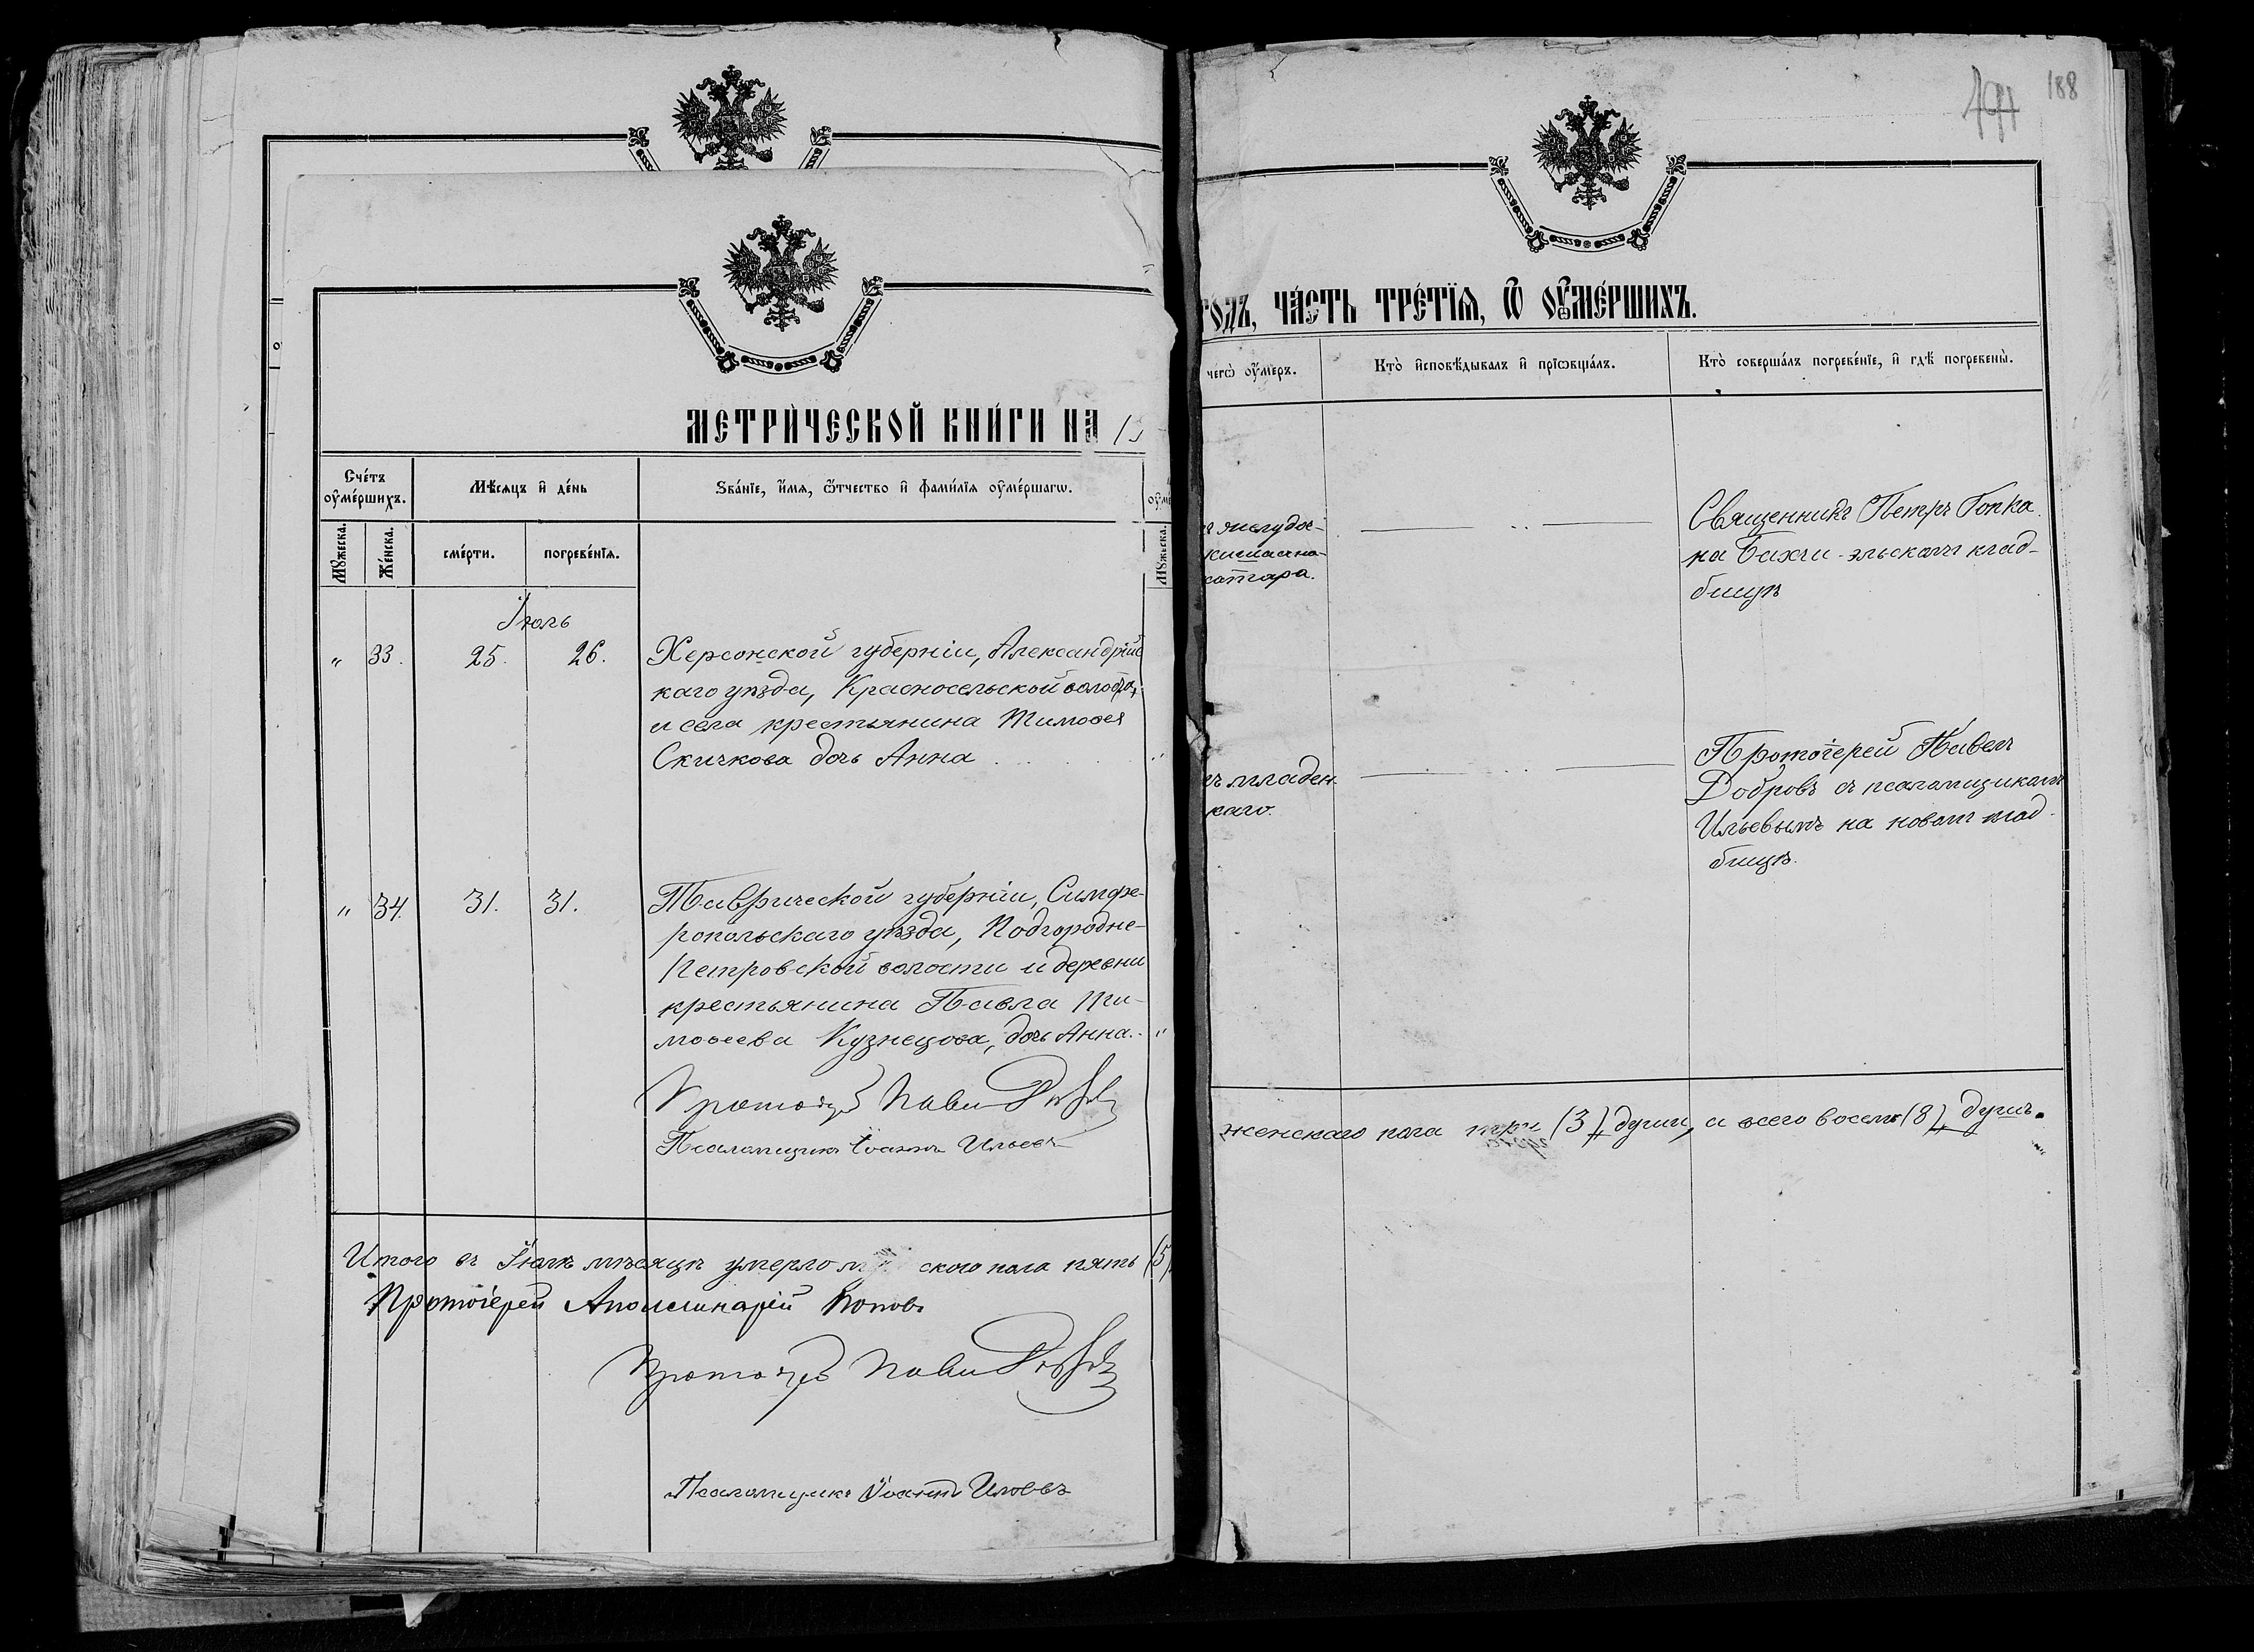 МЕТРИ́ЧЕСКОЙ КНИ́ГИ НА 19
Сче́тъ оу҆ме́ршихъ.
Мѣ́сяцъ и҆ де́нь
Зва́нїе, и҆́мѧ, ѻ҆́тчество и҆ фами́лїѧ оу҆ме́ршагѡ.
Мꙋ́жеска.
Же́нска.
сме́рти.
погребе́нїѧ.
Мꙋ́жеска.
Іюль
" 33. 25. 26.
Херсонской губерніи, Александрійс
каго уѣзда, Красносельской волости,
и села крестьянина Тимоѳея
Скичкова дочь Анна
" 34. 31. 31.
Таврической губерніи, Симфе-
ропольскаго уѣзда, Подгородне-
Петровской волости и деревни
крестьянина Павла Ти-
моѳеева Кузнецова, дочь Анна. "
Протоіерей Павелъ Добровъ
Псаломщикъ Іоаннъ Ильевъ
Итого въ Іюлѣ мѣсяцѣ умерло м ского пола пять (5)
Протоіерей Аполлинарій Поповъ
Протоіерей Павелъ Добровъ
Псаломщикъ Іоаннъ Ильевъ
188
ГОДЪ, ЧА́СТЬ ТРЕ́ТЇѦ, Ѽ ОУ҆МЕ́РШИХЪ.
чегѡ̀ оу҆́меръ.
Кто̀ и҆сповѣ́дывалъ и҆ прїѡбща́лъ.
Кто̀ соверша́лъ погребе́нїе, и҆ гдѣ̀ погребены̀.
желудоч-
кишечна-
катара.
Священникъ Петръ Гопка
на Бахчи-эльскомъ клад-
бищѣ
младен-
каго.
Протоіерей Павелъ
Добровъ съ псаломщикомъ
Ильевымъ на новомъ клад-
бищѣ.
женскаго пола три (3) души, а всего восемь (8) душъ.